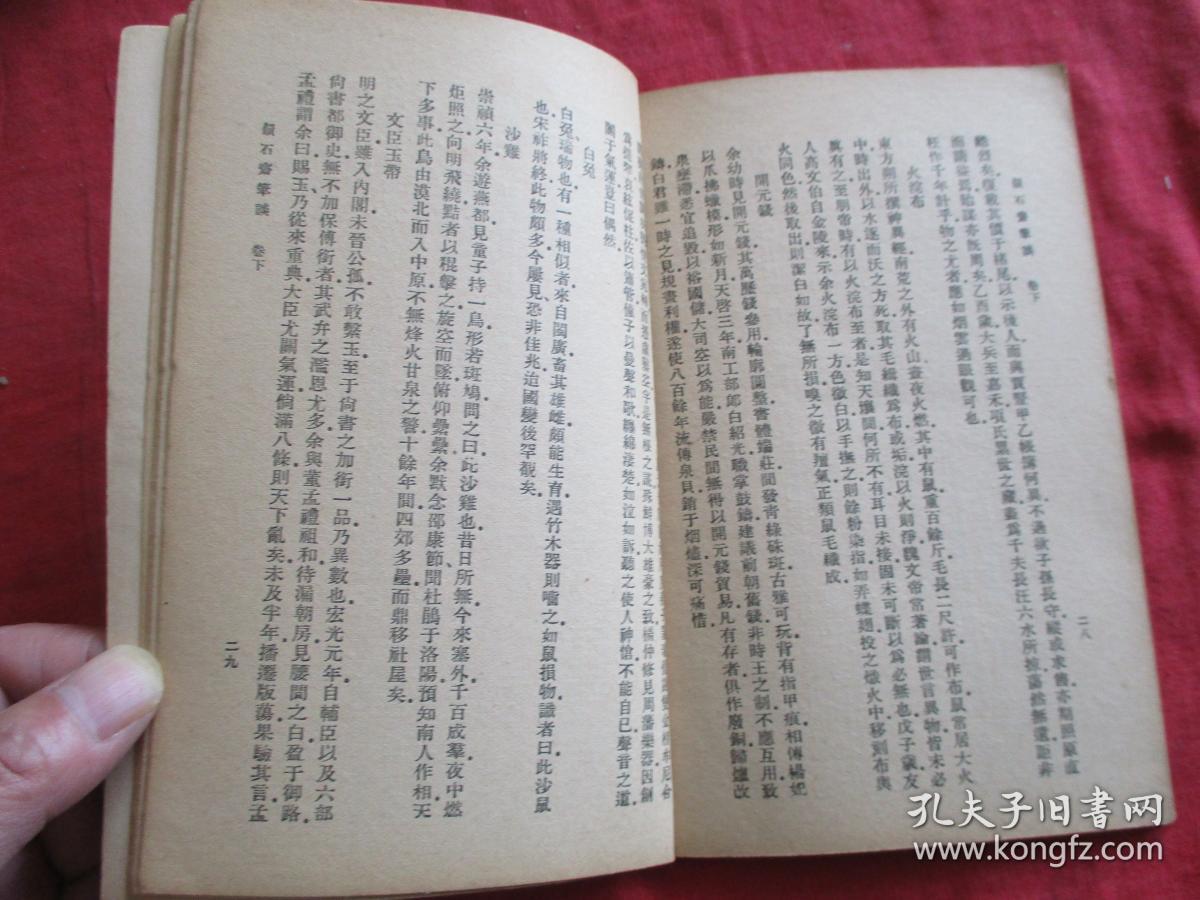 韻石齋筆談 卷下
二八
尚書都御史無不加保傅銜者其武弁之濫恩尤多余與董孟禮祖和待漏朝房見腰間之白盈于御路
火浣布
東方朔所撰神異經南荒之外有火山晝夜火燃其中有鼠重百餘斤毛長二尺許可作布鼠常居大火
中時出外以水逐而沃之方死取其毛緝織爲布或垢浣以火則淨魏文帝常著論謂世言異物皆未必
眞有之至明帝時有以火浣布至者是知天壤間何所不有耳目未接固未可斷以爲必無也戊子歲友
人高文伯自金陵來示余火浣布一方色微白以手撫之則餘粉染指如弄蝶翅投之燬火中移刻布與
火同色然後取出則潔白如故了無所損嗅之微有羶氣正類鼠毛織成
開元錢
余幼時見開元錢與萬歷錢參用輪廓圓整書體端莊間發青綠硃斑古雅可玩背有指甲痕相傳楊妃
以爪拂蠟模形如新月天啓三年南工部郎白紹光職掌鼓鑄建議前朝舊錢非時王之制不應互用致
泉壅滯悉宜追毀以裕國儲大司空以爲能嚴禁民間無得以開元錢貿易凡有存者俱作廢銅歸爐改
鑄白君雖一時之見規畫利權遂使八百餘年流傳泉貝銷于烟燼深可痛惜
關乎氣運豈曰偶然
白兔
白兔瑞物也有一種相似者來自閩廣畜其雄雌頗能生育遇竹木器則嚙之如鼠損物識者曰此沙鼠
也宋祚將終此物頗多今屢見恐非佳兆迨國變後罕覩矣
沙雞
崇禎六年余遊燕都見童子持一鳥形若斑鳩問之曰此沙雞也昔日所無今來塞外千百成羣夜中燃
炬照之向明飛繞點者以棍擊之旋空而墜俯仰纍纍余默念邵康節聞杜鵑于洛陽預知南人作相天
下多事此鳥由漠北而入中原不無烽火甘泉之警十餘年間四郊多壘而鼎移社屋矣
文臣玉帶
明之文臣雖入內閣未晉公孤不敢繫玉至于尙書之加銜一品乃異數也宏光元年自輔臣以及六部
尙書都御史無不加保傅銜者其武弁之濫恩尤多余與董孟禮祖和待漏朝房見腰間之白盈于御路
孟禮謂余曰賜玉乃從來重典大臣尤關氣運倘滿八條則天下亂矣未及半年播遷版蕩果驗其言孟
韻石齋筆談 卷下
二九
孔夫子旧书网
www.kongfz.com